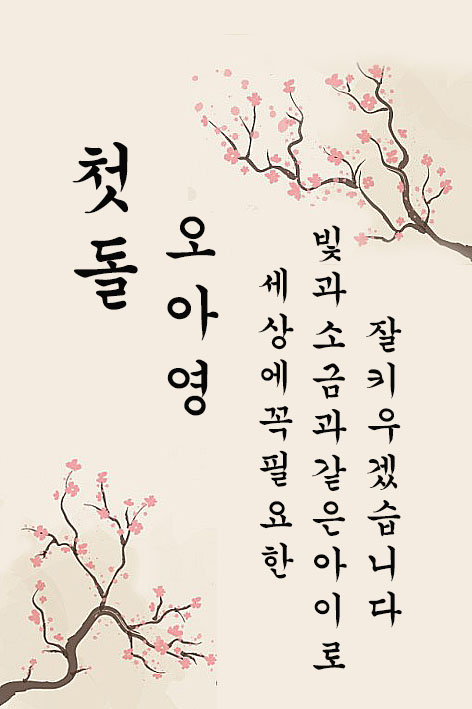 첫돌
오아영
세상에꼭필요한
빛과소금과같은아이로
잘키우겠습니다